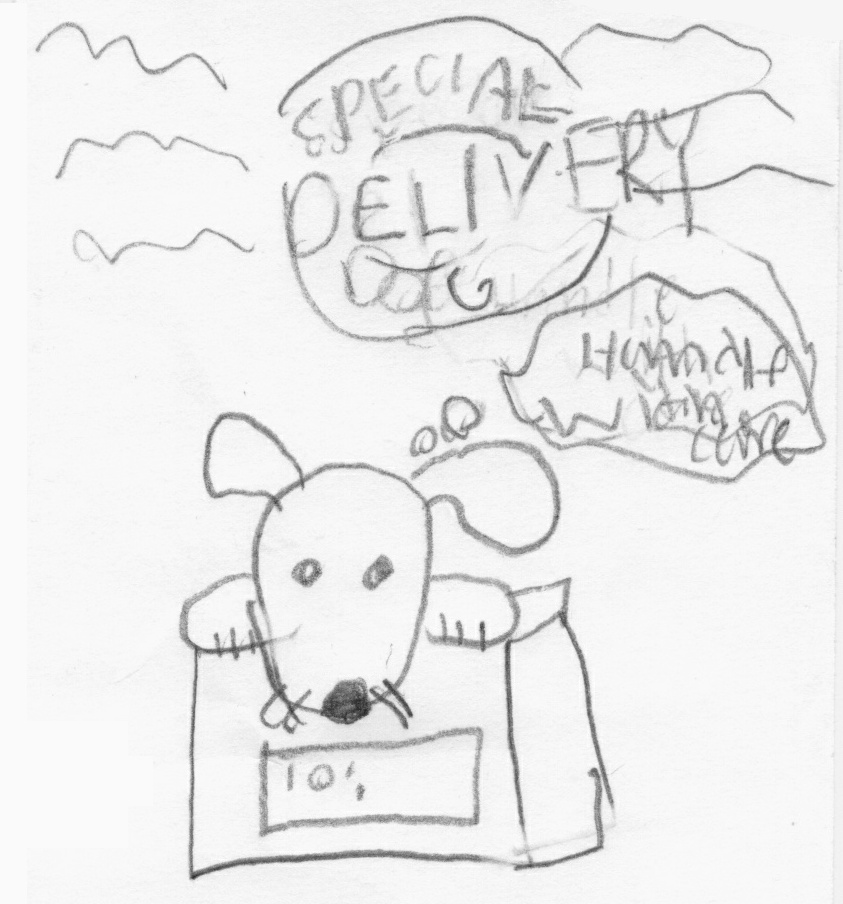 SPECIAL
DELIVERY
Handle
With
care
TO: